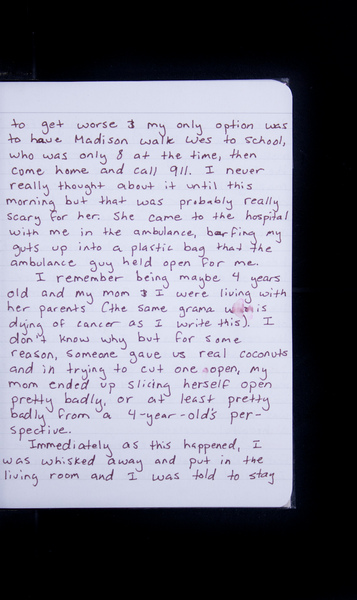 to get worse & my only option was
to have Madison walk Wes to school,
who was only 8 at the time, then
come home and call 911. I never
really thought about it until this
morning but that was probably really
scary for her. She came to the hospital
with me in the ambulance, barfing my
guts up into a plastic bag that the
ambulance guy held open for me.
I remember being maybe 4 years
old and my mom & I were living with
her parents (the same grama is
dying of cancer as I write this). I
don't know why but for some
reason, someone gave us real coconuts
and in trying to cut one open, my
mom ended up slicing herself open
pretty badly, or at least pretty
badly from a 4-year-old's per-
spective.
Immediately as this happened, I
was whisked away and put in the
living room and I was told to stay